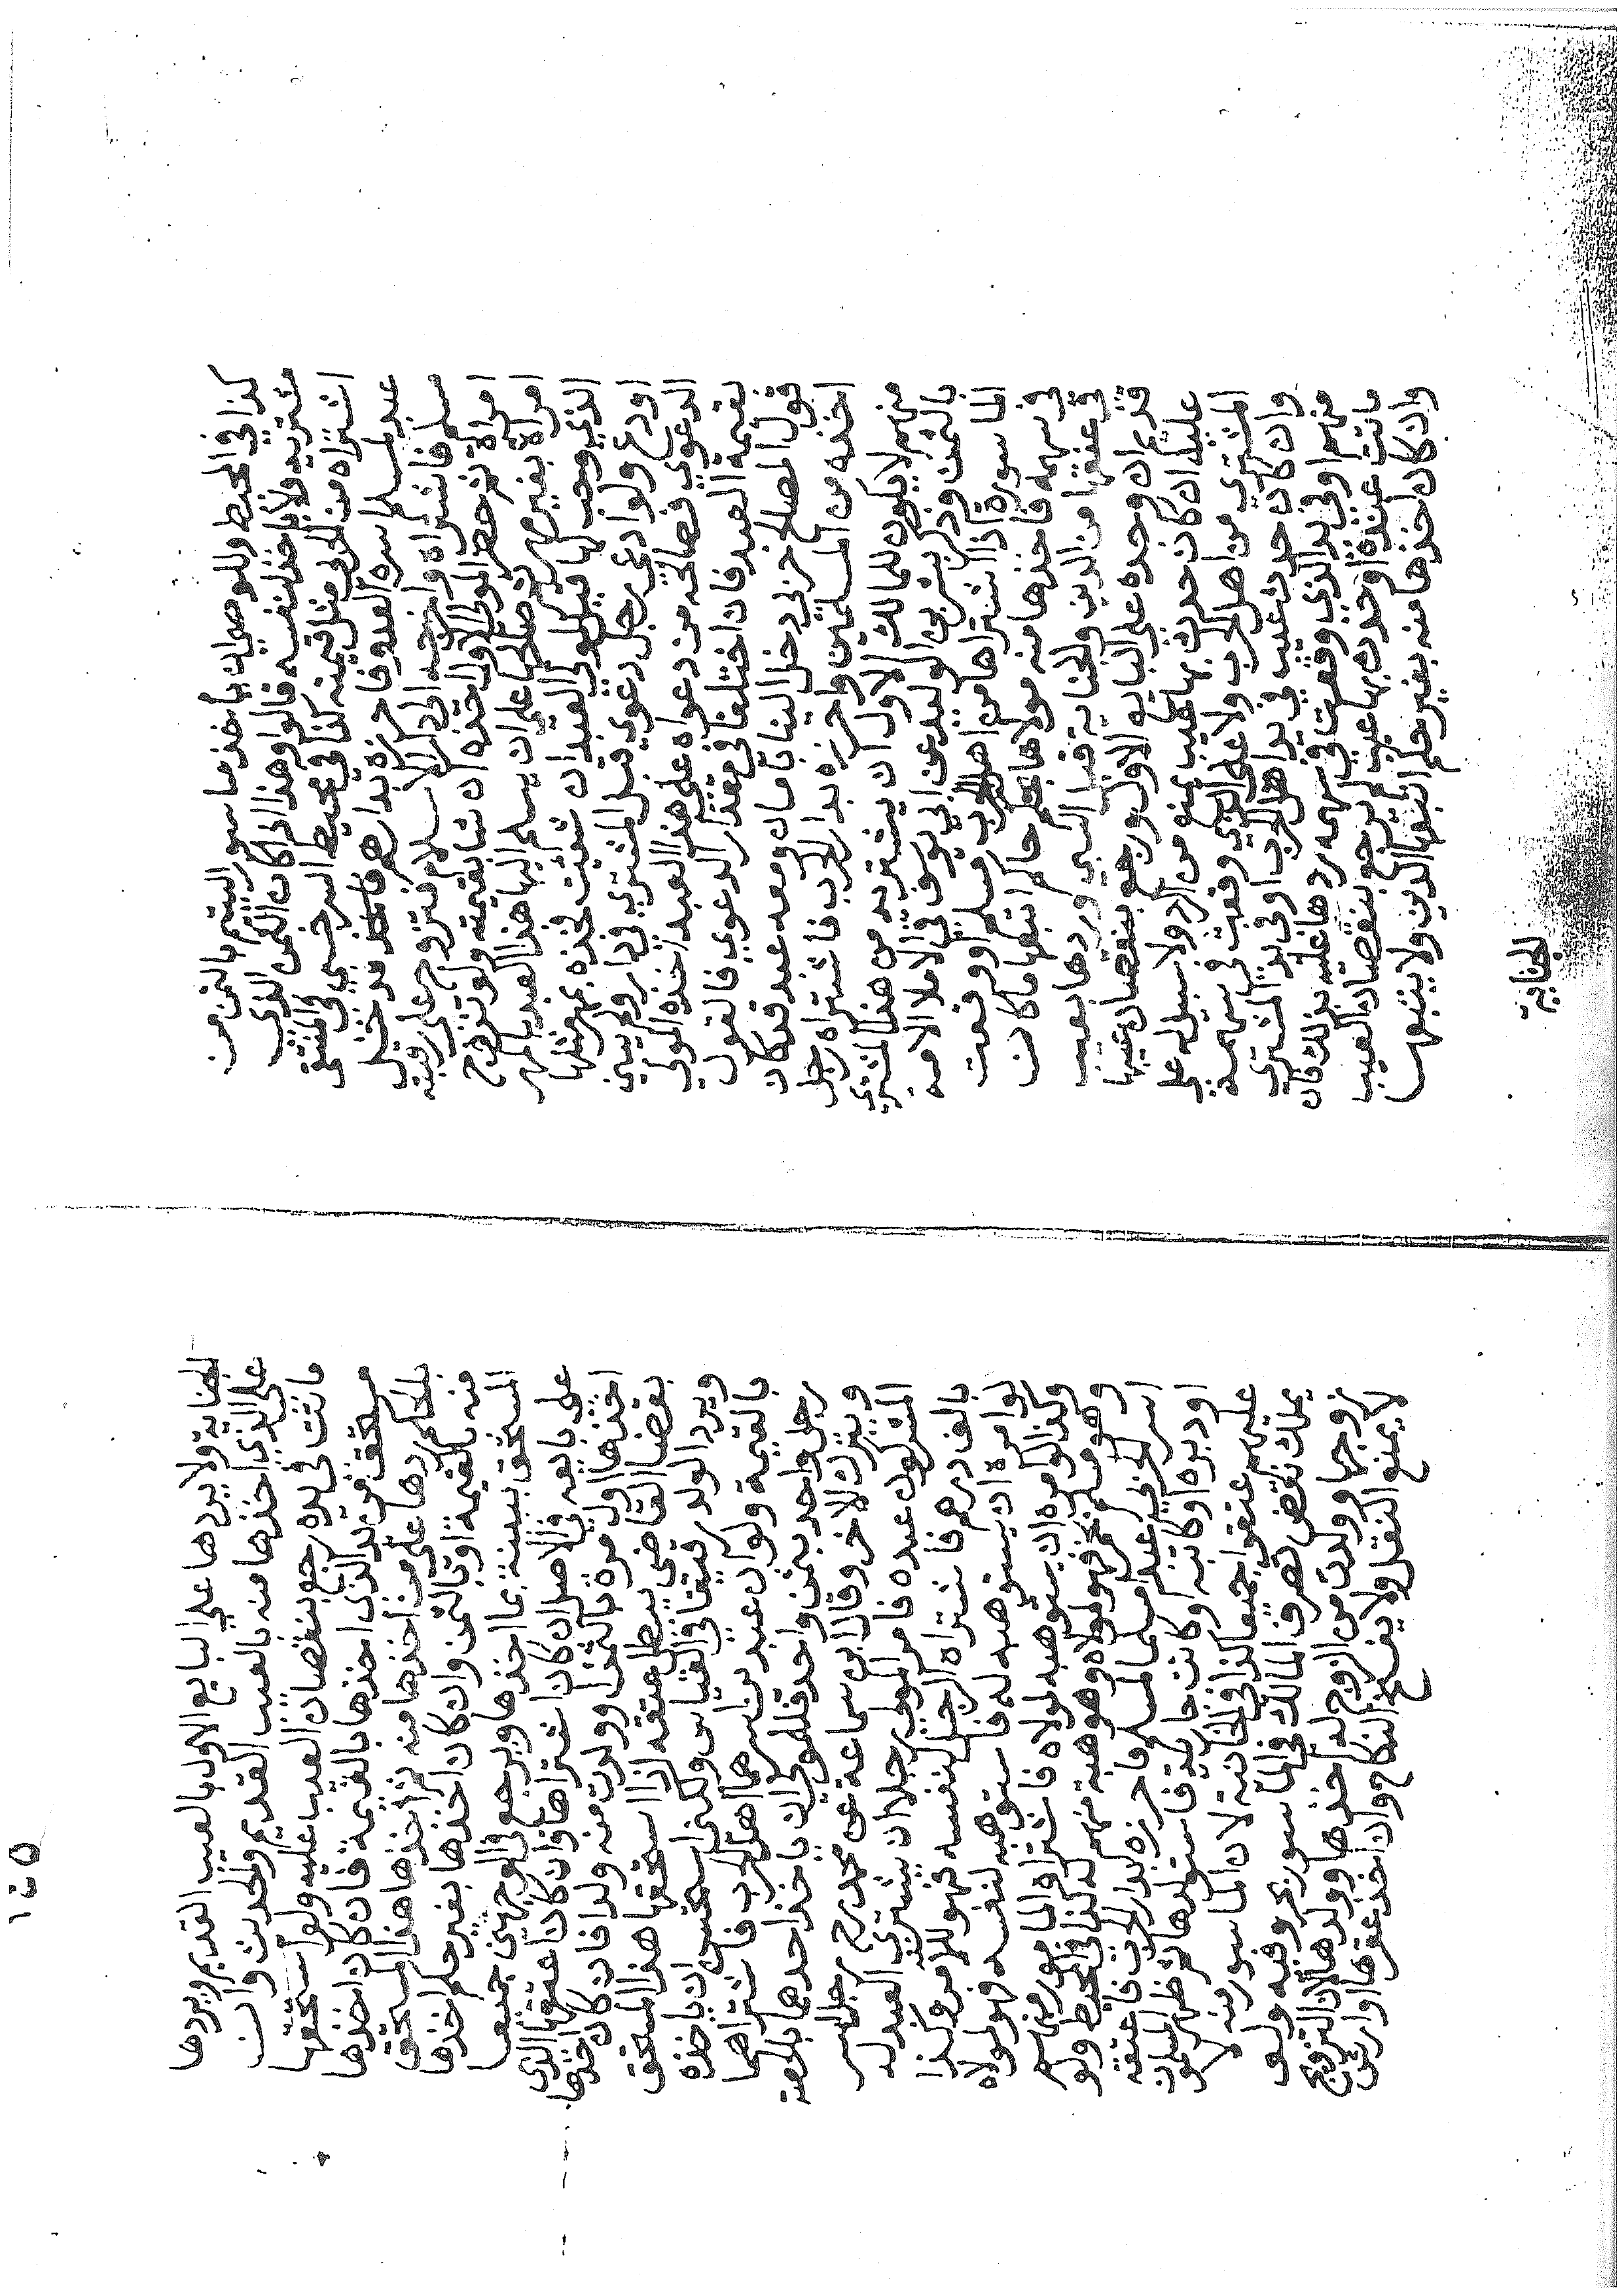 كذا في المحيط وللوصي ان يأخذ ما سور اليتيم بالثمن من
مشتريه ولا يأخذ لنفسه قالوا وهذا اذا كان الثمن الذي
اشتراه من العدو مثل قيمته كذا في محيط السرخسي وفي المنتقى
عبد لمسلم اسره العدو فاحرزه بدارهم ثم دخل
مسلم فاشتراه واخرجه الى دار الاسلام فتزوج على رقبته
امراة ثم حضر المولى الاول اخذه ان شا بقيمته ولو تزوج
امراة بغير مهر ثم صالحها على ان يسلم اليها هذا العبد بالمهر
الذي وجب لها قيل لمولى العبد ان شئت فخذه بمهر مثلها
اودع ولو ادعى رجل دعوى قبل المشتري في دار ولم يبين
الدعوى فصالحه من دعواه على هذا العبد اخذه المولى
بقيمة العبد فان اختلفا في مقدار الدعوى فالقول
قول المصالح حربي دخل الينا بامان ومعه عبد قد كان
اخذه من المسلمين واحرزه بدار الحرب فاشتراه رجل
منهم لا يكون للمالك الاول ان يشتريه من هذا المشتري
بالثمن وذكر بشر بن الوليد عن ابي يوسف في الاملا الامة
الماسورة اذا اشتراها من اهل الحرب مسلم او وقعت
في سهمه فاخذها منه مولاها بحكم حاكم اتبعها ما كان
في عنقها من الدين والجناية قبل السبي وردها بعيب
قديم ان وجده على البايع الاول ورجع بنقصان عيبها
عليه ان كان حدث بها عيب يمنع من الرد ولا سبيل له على
المشتري من اهل الحرب ولا على الذي وقعت في سهمه
وان كان حدث عيب في يد اهل الحرب او في يد المشتري
منهم او في يد الذي وقعت في سهمه ردها عليه بذلك فان
ماتت عنده او حدث بها عيب لم يرجع بنقصان العيب
وان كان اخذها منه بغير حكم اتبعها الدين ولا يتبعها
الجناية
الجناية ولا يردها على البايع الاول بالعيب القديم ويردها
على الذي اخذها منه بالعيب القديم والحديث وان
ماتت في يده رجع بنقصان العيب عليه ولو استحقها
مستحق من يد الذي اخذها بالقيمة فان كان اخذها
بالحكم ردها على من اخذها منه ثم اخذها هذا المستحق
منه بالقيمة او بالثمن وان كان اخذها بغير حكم اخذها
المستحق ببينة بما اخذها ويرجع في الوجهين جميعا
على بايعه في الاصل ان كان اشتراها وان كان عتقها الذي
اخذها اول مرة بالثمن او ولدت منه ولدا فان كان اخذها
بقضا القاضي يبطل عتقه اذا استحقها هذا المستحق
ويرد الولد رقيقا في القياس ولكني استحسن ان ياخذه
بالقيمة ولو ان عبدين اسرهما اهل الحرب فاشتراهما
رجل واحد بثمن واحد فللمولى ان ياخذ احدهما بالحصة
ويترك الاخر وقال ابن سماعة عن محمد رح رجل اسر
المشركون عبده فامر المولى رجلا ان يشتري العبد له
بالف درهم فاشتراه الرجل لنفسه فهو للامر وكذا
لو امره ان يستوهبه له فاستوهبه لنفسه فهو لمولاه
وكذا لو امره ان يستوهبه لمولاه فاشتراه المامور منهم
وهو فهو لمولاه وهو هبة منهم له كذا في المحيط ولو
اسر حربي عبدا مسلما لمسلم فاحرزه بدار الحرب فاعتقه
او دبره او كاتبه او كانت جارية فاستولدها ثم ظهر المسلمون
عليهم عتقوا جميعا كذا في الخانية لان الماسور منه لا
يملك نقض تصرف المالك في الماسور بحر وفيه ولو
زوجها وولدت من الزوج له اخذها وولدها لان التزويج
لا يمنع النقل ولا يفسخ النكاح وان اخذ عقرها او ارش
١٤٥